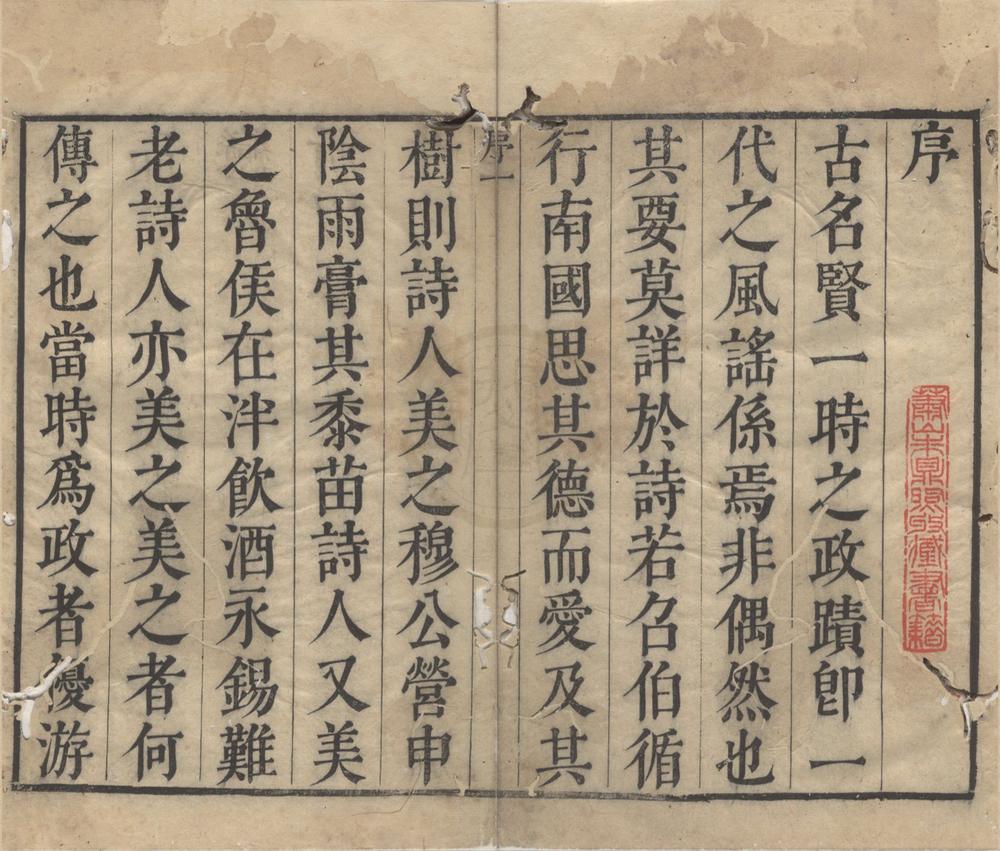 序
古名賢一時之政蹟卽一
代之風謠係焉非偶然也
其要莫詳於詩若召伯循
行南國思其德而愛及其
序一
樹則詩人美之穆公營申
陰雨膏其黍苗詩人又美
之魯侯在泮飮酒永錫難
老詩人亦美之美之者何
傳之也當時爲政者優游